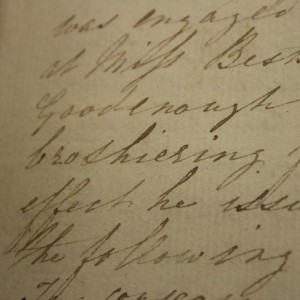 was engaged
at Miss Besh
Goodenough
broshiering
effect he issu
the following